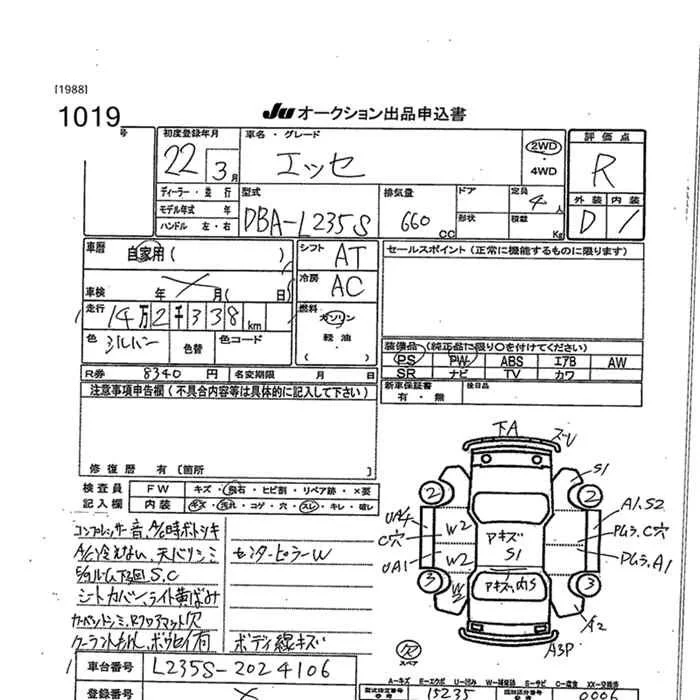 [1988]
1019
号
Ju オークション出品申込書
初度登録年月
22 3月
車名・グレード
エッセ
2WD
・
4WD
評価点
R
外装 内装
D 1
ディーラー・並行
モデル年式 年
ハンドル 左・右
型式
DBA-L235S
排気量
660 CC
ドア
形状
定員
4 人
積載
Kg
車歴
自家用 ( )
車検 年 月( 日)
走行
14万2千338km
色
シルバー
色替
色コード
シフト
AT
冷房
AC
燃料
ガソリン
・
軽油
・
( )
セールスポイント (正常に機能するものに限ります)
装備品 (純正品に限り○を付けてください)
PS PW ABS エアB AW
SR ナビ TV カワ
R券 8340 円
名変期限 月 日
新車保証書
有・無
後日品
注意事項申告欄 (不具合内容等は具体的に記入して下さい)
修復歴 有 [箇所 ]
検査員
記入欄
FW キズ・飛石・ヒビ割・リペア跡・×要
内装 キズ・汚れ・コゲ・穴・スレ・キレ・破レ
コンプレッサー音、A/C時ボトツキ
A/C冷えない、天バリシミ
ルーム下回S.C
シートカバー、ライト黄ばみ
カーペントシミ、Rフロアマット穴
クーラントもれ、ボウセイ有
センターピラーW
ボディ線キズ
下A
ズレ
S1
2
2
UA4
C穴
UA1
W2
W2
W2
アキズ
S1
A1.S2
PムラC穴
PムラA1
3
3
アキズ内S
A2
A3P
R
スペア
車台番号
L235S-2024106
A-キズ E-エクボ U-凹み W-補修跡 S-サビ C-腐食 XX-交換済
登録番号
型式指定番号
15235
類別区分番号
0006